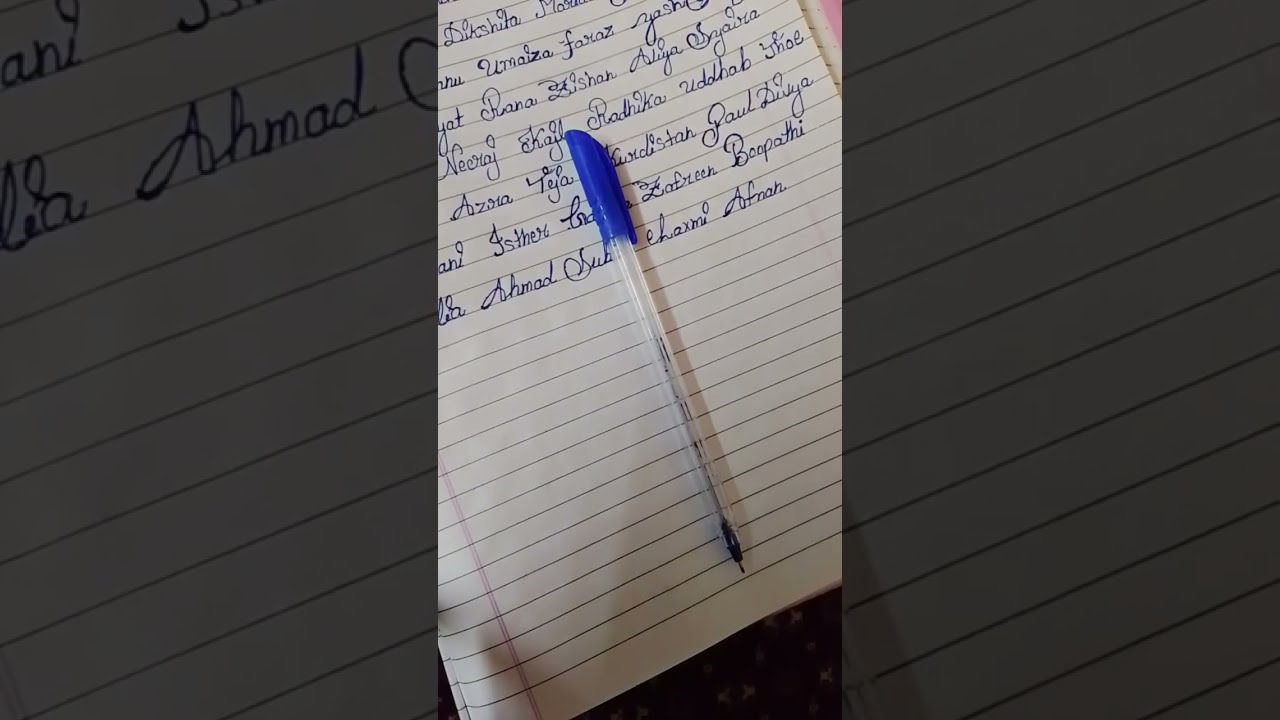 Dikshita
Umaiza Faraz Yash
Rana Zishan Aliya Syaira
Neeraj Radhika Uddhab Thoe
Azra Teja Kurdistan Paul Divya
ani Isther Zafreen Boopathi
lia Ahmad Sub Laxmi Afnan